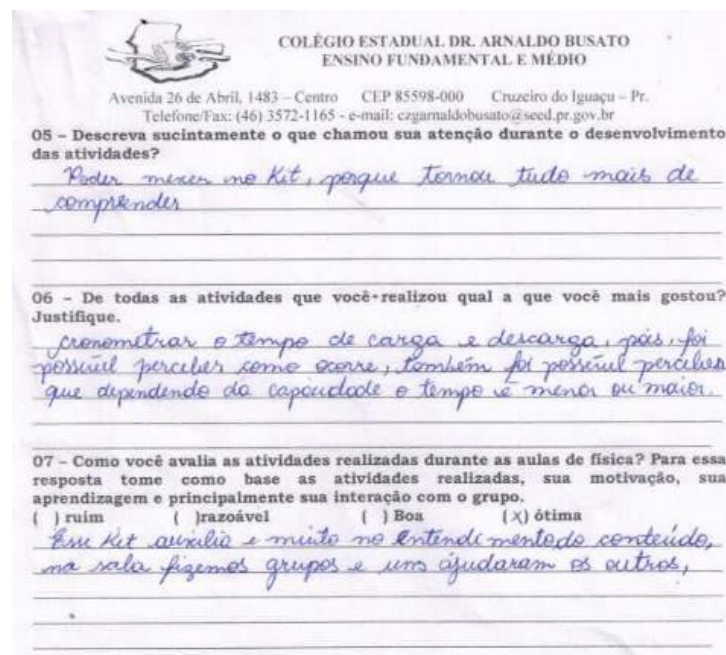 COLÉGIO ESTADUAL DR. ARNALDO BUSATO
ENSINO FUNDAMENTAL E MÉDIO
Avenida 26 de Abril, 1483 – Centro CEP 85598-000 Cruzeiro do Iguaçu – Pr.
Telefone/Fax: (46) 3572-1165 - e-mail: czgarnaldobusato@seed.pr.gov.br
05 – Descreva sucintamente o que chamou sua atenção durante o desenvolvimento
das atividades?
Poder mexer no Kit, porque tornou tudo mais de
compreender
06 – De todas as atividades que você realizou qual a que você mais gostou?
Justifique.
cronometrar o tempo de carga e descarga, pois, foi
possivel perceber como ocorre, também foi possivel perceber
que dependendo da capacidade o tempo é menor ou maior.
07 – Como você avalia as atividades realizadas durante as aulas de física? Para essa
resposta tome como base as atividades realizadas, sua motivação, sua
aprendizagem e principalmente sua interação com o grupo.
( ) ruim ( )razoável ( ) Boa (X) ótima
Esse Kit auxilia e muito no entendimento do conteúdo,
na sala fizemos grupos e uns ajudaram os outros,